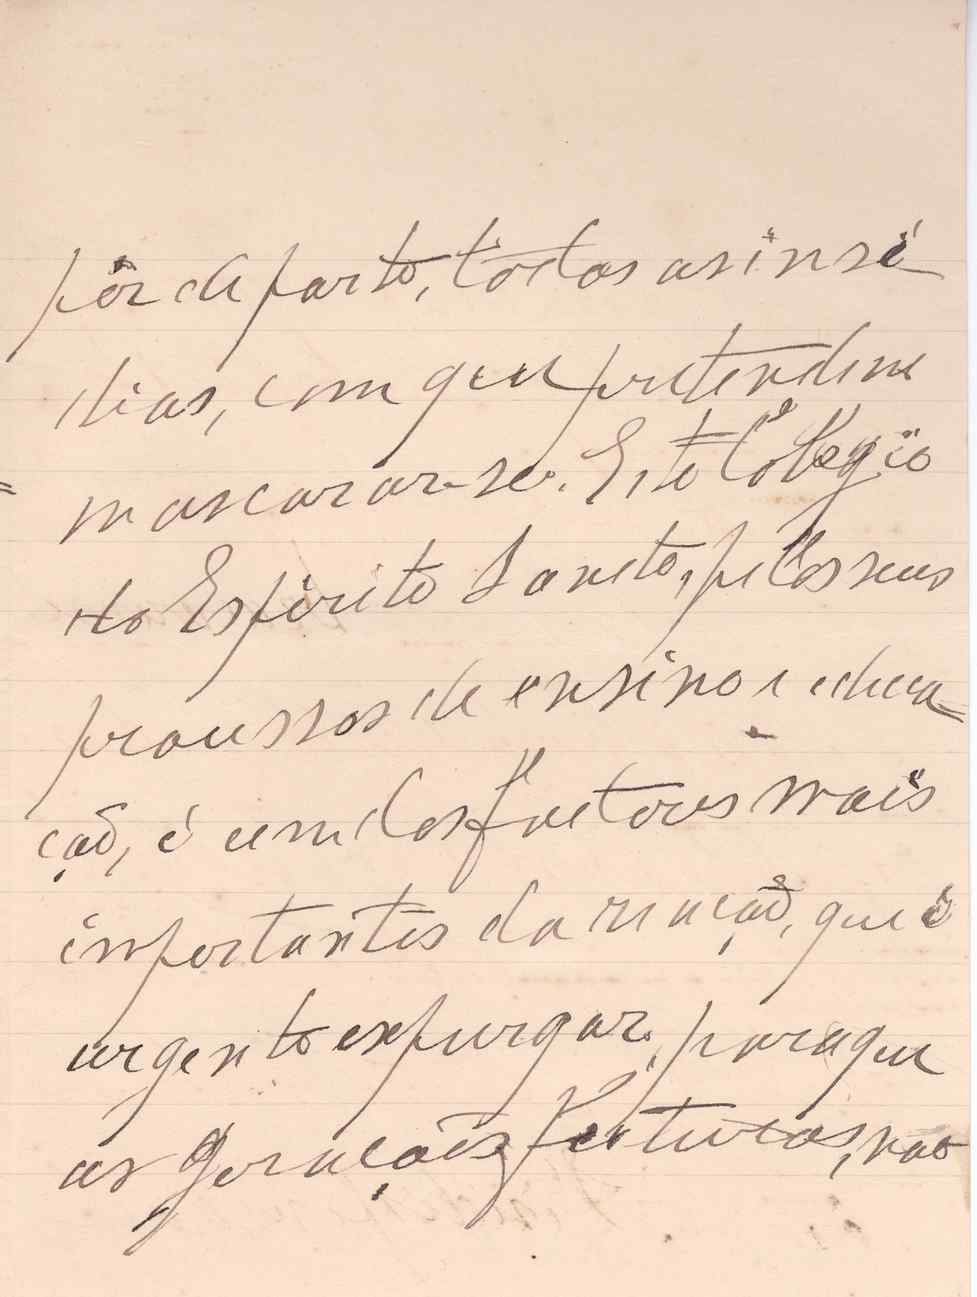 pôr de parte, todas as insi-
dias, com que pretendem
mascarar-se. Este Collegio
do Espirito Santo, pelos seus
processos de ensino e educa-
ção, é um dos factores mais
importantes da reacção, que é
urgente expurgar, para que
as gerações futuras, não